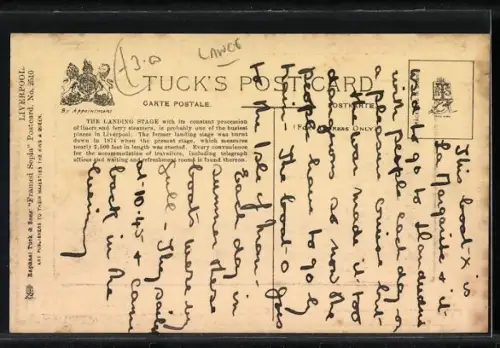 LIVERPOOL.
Raphael Tuck & Sons' "Framed Sepia" Postcard. No. 2040
ART PUBLISHERS TO THEIR MAJESTIES THE KING & QUEEN.
By Appointment
TUCK'S POST CARD
CARTE POSTALE.
POSTKARTE.
THE LANDING STAGE with its constant procession
of liners and ferry steamers, is probably one of the busiest
places in Liverpool. The former landing stage was burnt
down in 1874 when the present stage, which measures
nearly 2,500 feet in length was erected. Every convenience
for the accommodation of travellers, including telegraph
offices and waiting and refreshment rooms is found thereon.
£3.0
LAW06
This boat X is
La Marguerite & it
used to go to Llandudno
with people each day on
a pleasure cruise but
the war made it too
dangerous so now the
people have to go by
train. The boat O goes
to the Isle of Man.
Each day in
summer these
boats were
full. They sail
at 10.45 & came
back in the
evening